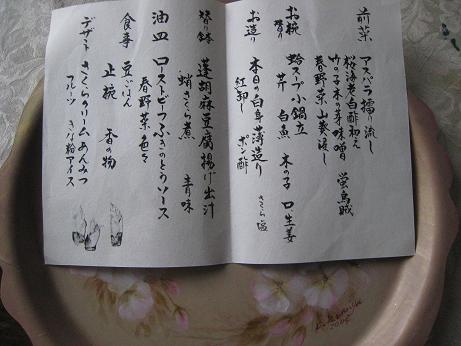 前菜
アスパラ擂り流し
桜海老白酢和え
竹の子木の芽味噌 蛍烏賊
春野菜山葵浸し
お椀替り
蛤スープ小鍋立
芹 白魚 木の子 口生姜
お造り
本日の白身薄造り さくら塩
紅卸し ポン酢
替り鉢
蓬胡麻豆腐揚げ出汁
蛸さくら煮 青味
油皿
ローストビーフふきのとうソース
春野菜色々
食事
豆ごはん
止椀 香の物
デザート
さくらクリームあんみつ
フルーツ きな粉アイス
2005